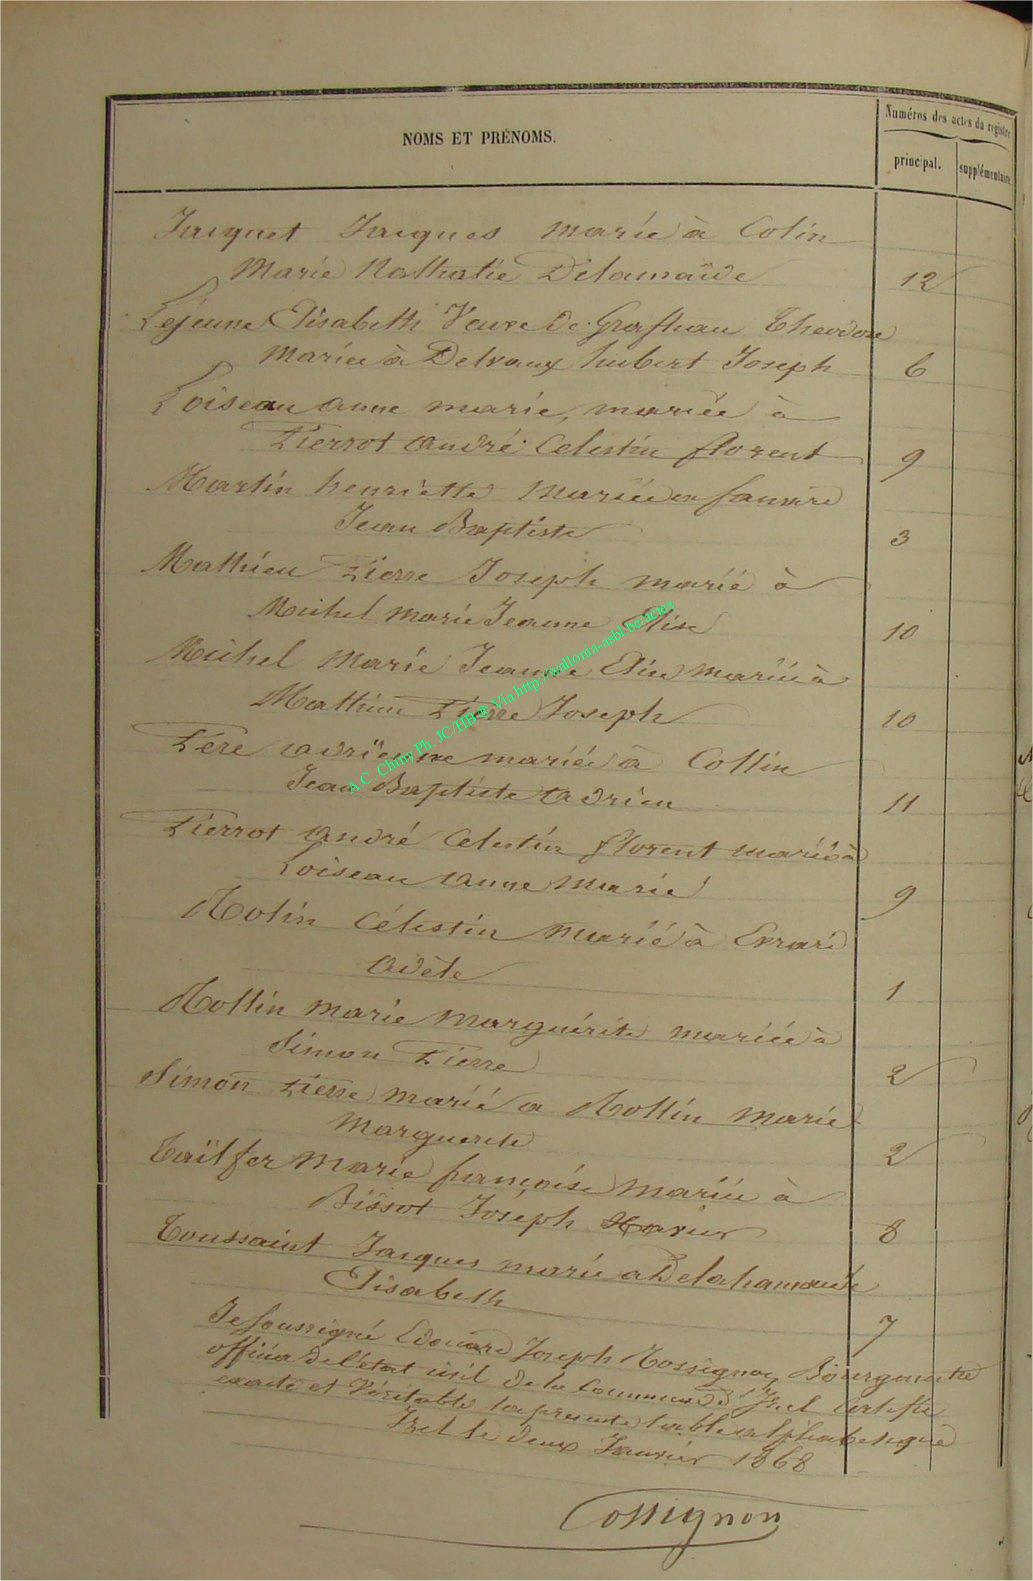 Numéros des actes du registre
NOMS ET PRÉNOMS.
principal.
supplémentaire
Jacquet Jacques marié à Colin
Marie Nathalie Delamaïde 12
Lejeune Elisabeth Veuve de Theodore
mariée à Delvaux hubert Joseph 6
Loiseau anne marie, mariée à
Pierrot andré Celestin florent 9
Martin henriette mariée a
Jean Baptiste 3
Mathieu Pierre Joseph marié à
Michel marie Jeanne Elise 10
Michel Marie Jeanne Elise mariée à
Mathieu Pierre Joseph 10
Père adrïenne mariée à Collin
Jean Baptiste adrien 11
Pierrot andré Celestin florent marié à
Loiseau anne marie 9
Rolin Célestin marié à Evrard
adèle 1
Rollin marie marguérite mariée à
Simon Pierre 2
Simon Pierre marié a Rollin marie
Marguerite 2
Taïlfer Marie françoise mariée à
Bissot Joseph Xavier 8
Toussaint Jacques marié a Delahamaide
Elisabeth 7
Je soussigné Edouard Joseph Rossignon, Bourgmestre
officier de l'état civil de la Commune d'Izel Certifie
exacte et Véritable la présente table alphabetique
Izel le deux Janvier 1868
Rossignon
A.C. Chiny Ph. JC/HB © Via http://wallonia-asbl.be/acien